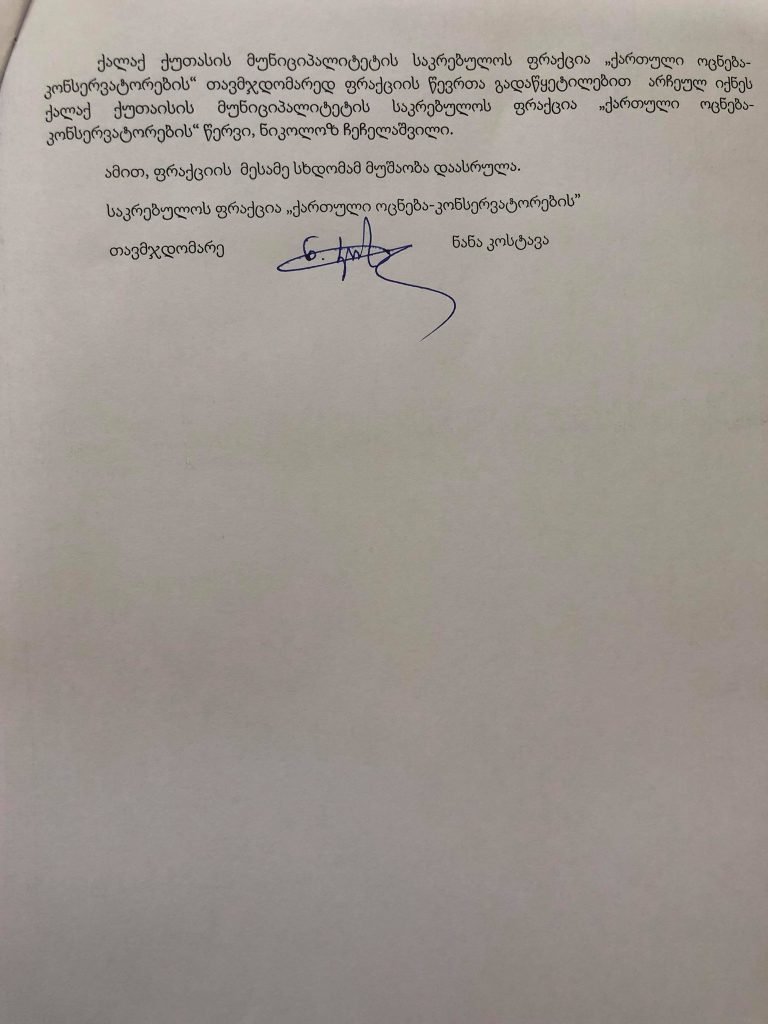 ქალაქ ქუთასის მუნიციპალიტეტის საკრებულოს ფრაქცია „ქართული ოცნება-
კონსერვატორების“ თავმჯდომარედ ფრაქციის წევრთა გადაწყეტილებით არჩეულ იქნეს
ქალაქ ქუთაისის მუნიციპალიტეტის საკრებულოს ფრაქცია „ქართული ოცნება-
კონსერვატორების“ წერვი, ნიკოლოზ ჩეჩელაშვილი.
ამით, ფრაქციის მესამე სხდომამ მუშაობა დაასრულა.
საკრებულოს ფრაქცია „ქართული ოცნება-კონსერვატორების”
თავმჯდომარე ნანა კოსტავა